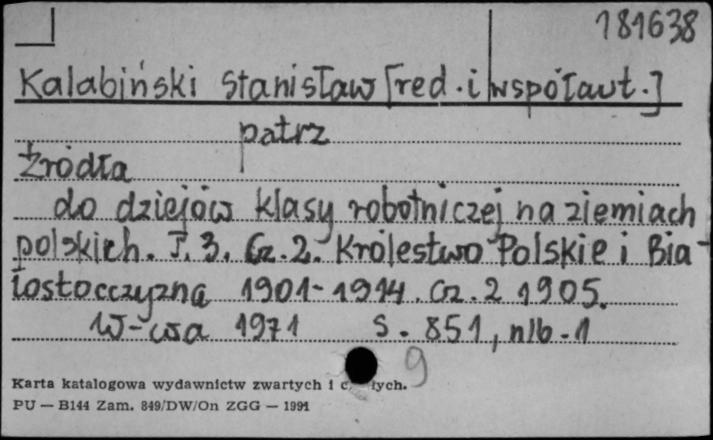 181638
Kalabiński Stanisław [red. i współaut.]
patrz
Źródła
do dziejów klasy robotniczej na ziemiach
polskich. T. 3. Cz. 2. Królestwo Polskie i Bia-
łostocczyzna 1901-1914. Cz. 2 1905.
W-wa 1971 s. 851, nlb. 1
9
Karta katalogowa wydawnictw zwartych i
PU — B144 Zam. 849/DW/On ZGG — 1991